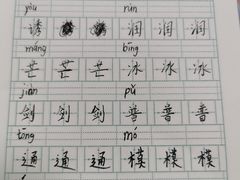 yòu rùn
诱 润 润 润
máng bīng
芒 芒 芒 冰 冰 冰
jiàn pǔ
剑 剑 剑 普 普 普
tōng mó
通 通 通 模 模 模